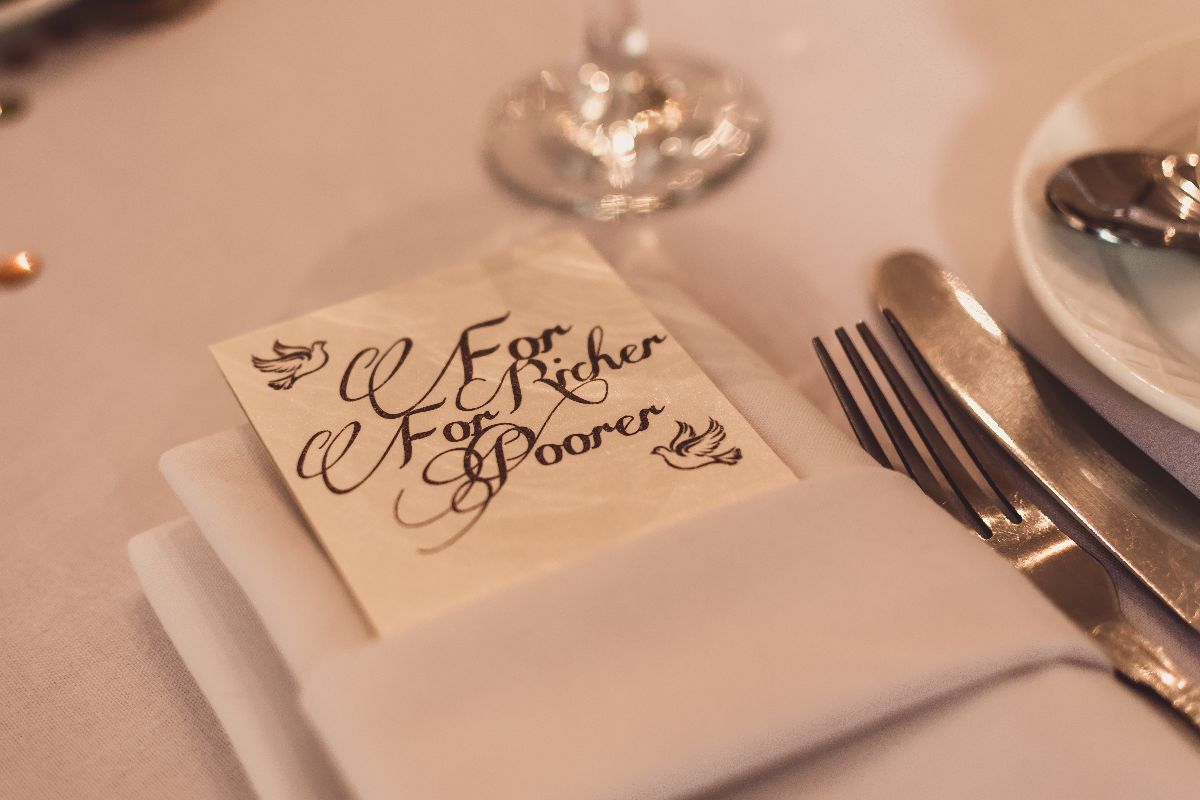 For
Richer
For
Poorer